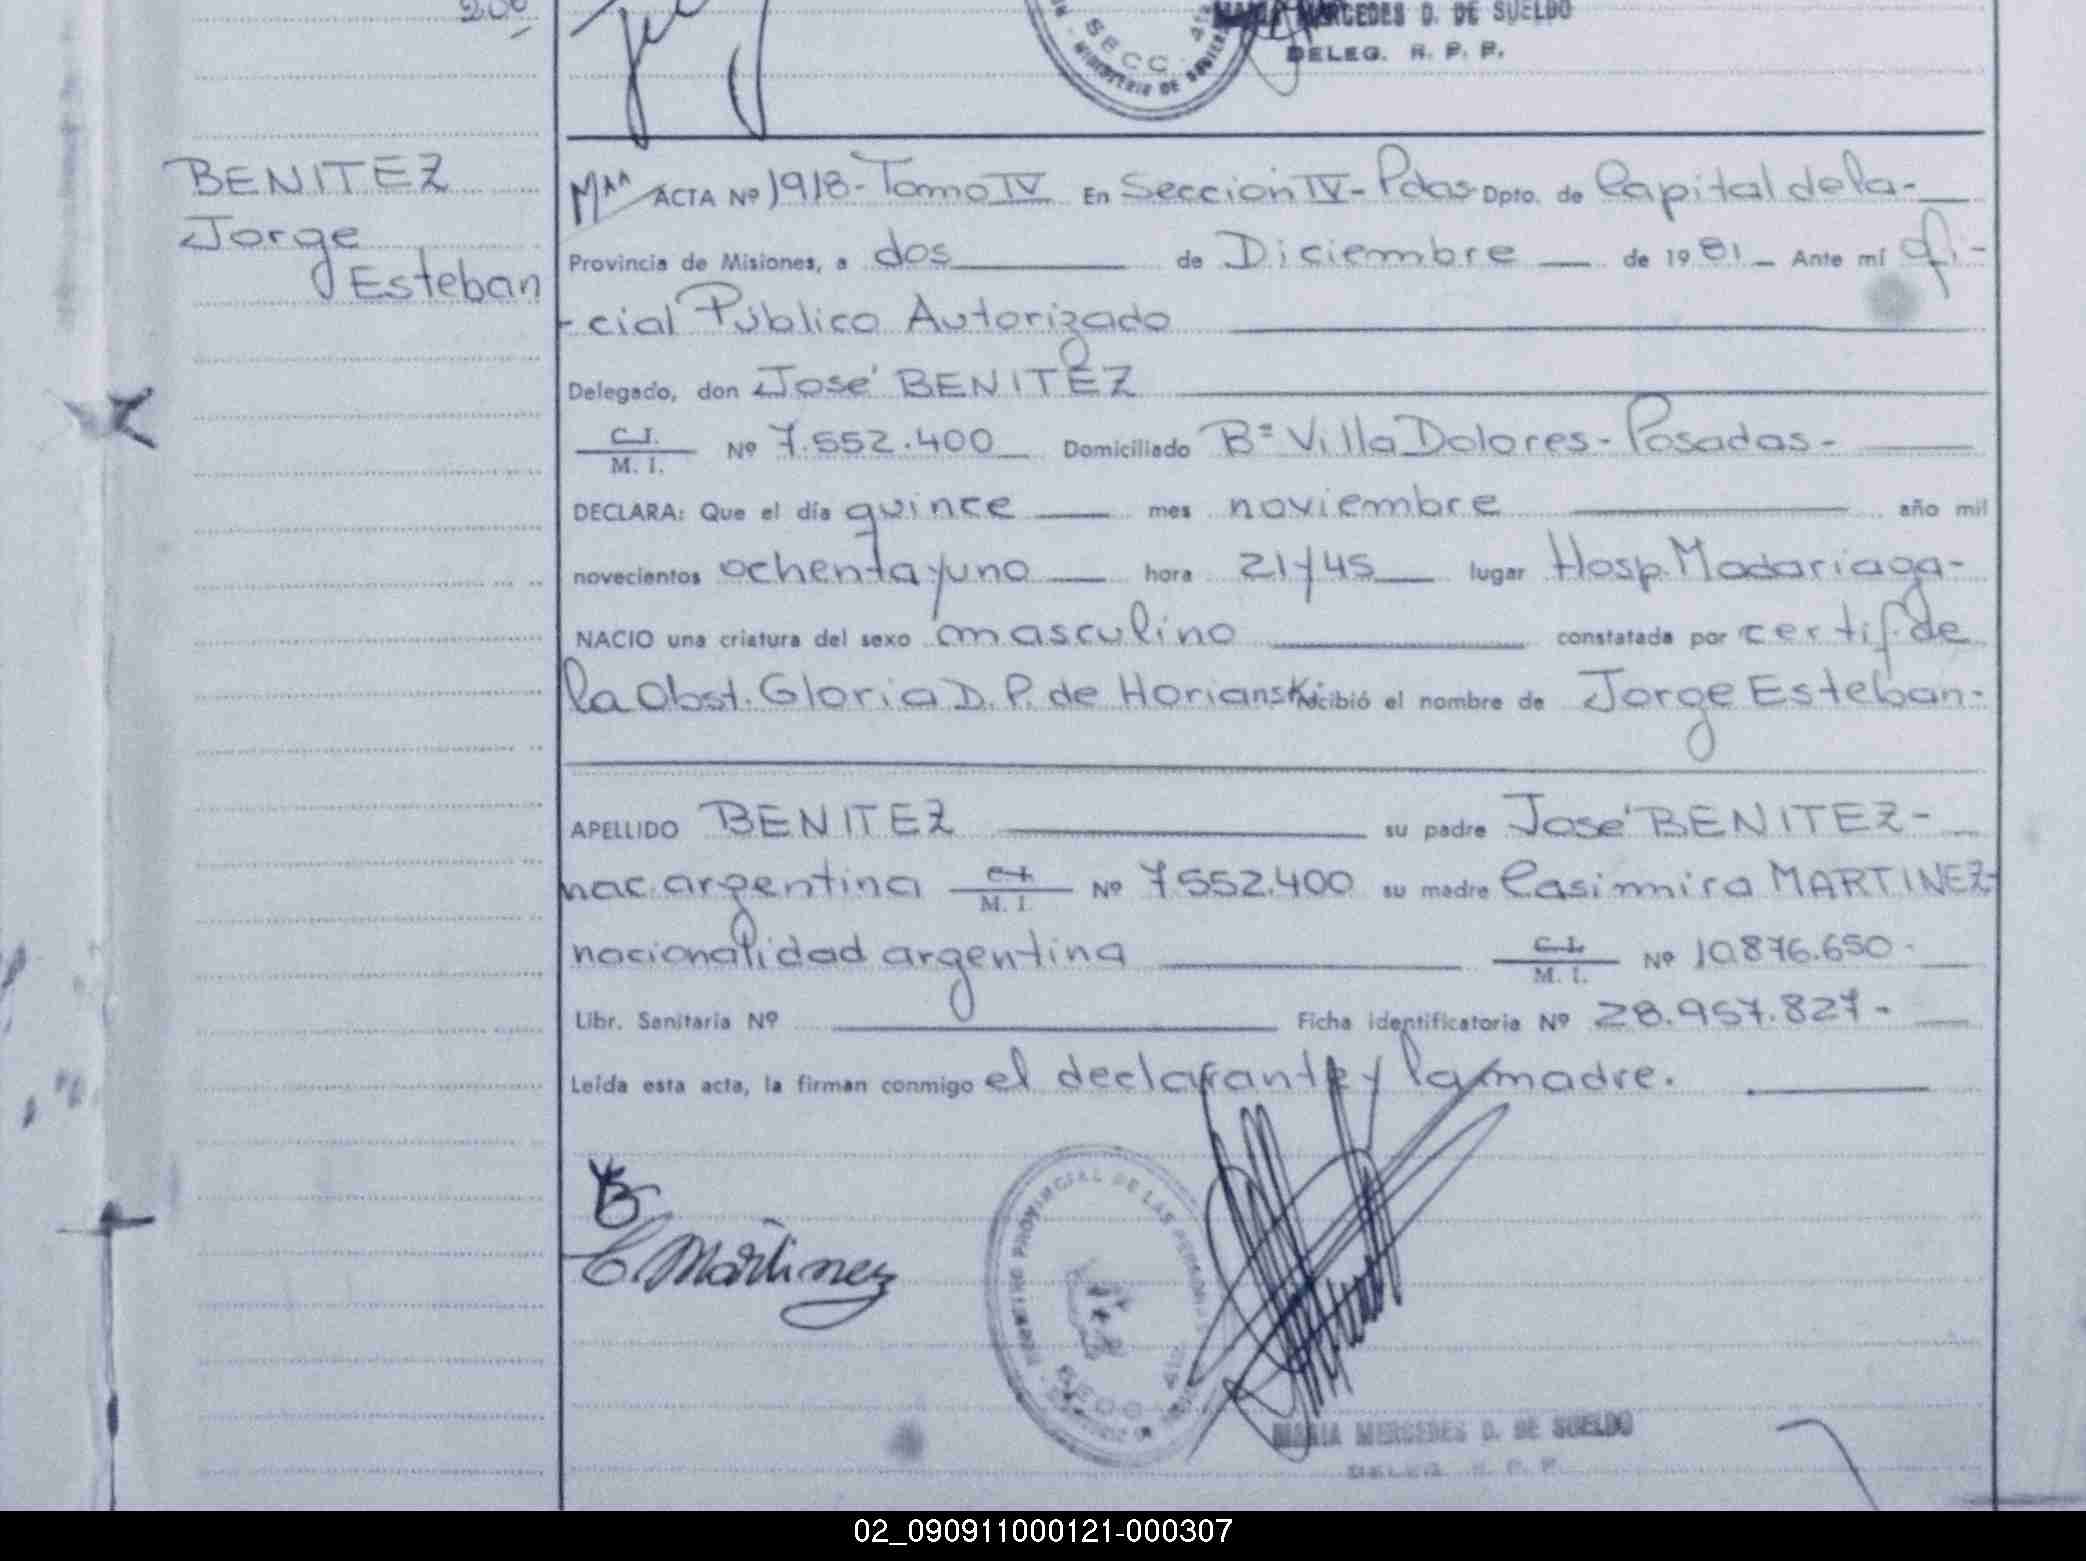 MERCEDES D. DE SUELDO
DELEG. R. P. P.
SECC. 4ta
MINISTERIO DE
BENITEZ
Jorge
Esteban
ACTA Nº 1918- Tomo IV En Sección IV- Pdas Dpto. de Capital de la-
Provincia de Misiones, a dos de Diciembre de 1981 Ante mí ofi-
-cial Público Autorizado
Delegado, don José BENITEZ
C.I.
M. I. Nº 7.552.400 Domiciliado Bº Villa Dolores- Posadas-
DECLARA: Que el día quince mes noviembre año mil
novecientos ochenta y uno hora 21 y 45 lugar Hosp. Madariaga-
NACIO una criatura del sexo masculino constatada por certif. de
la Obst. Gloria D. P. de Horianski recibió el nombre de Jorge Esteban-
APELLIDO BENITEZ su padre José BENITEZ-
nac. argentina C.I.
M. I. Nº 7.552.400 su madre Casimira MARTINEZ-
nacionalidad argentina C.I.
M. I. Nº 10.876.650-
Libr. Sanitaria Nº Ficha identificatoria Nº 28.957.827-
Leída esta acta, la firman conmigo el declarante y la madre.
C. Martinez
REGISTRO PROVINCIAL DE LAS PERSONAS
MARIA MERCEDES D. DE SUELDO
DELEG. R. P. P.
02_090911000121-000307